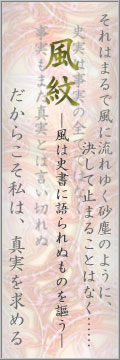 それはまるで風に流れゆく砂塵のように、
決して止まることはなく……
史実は事実の全てではなく
事実もまた真実とは言い切れぬ
風紋
―風は史書に語られぬものを謳う―
だからこそ私は、真実を求める